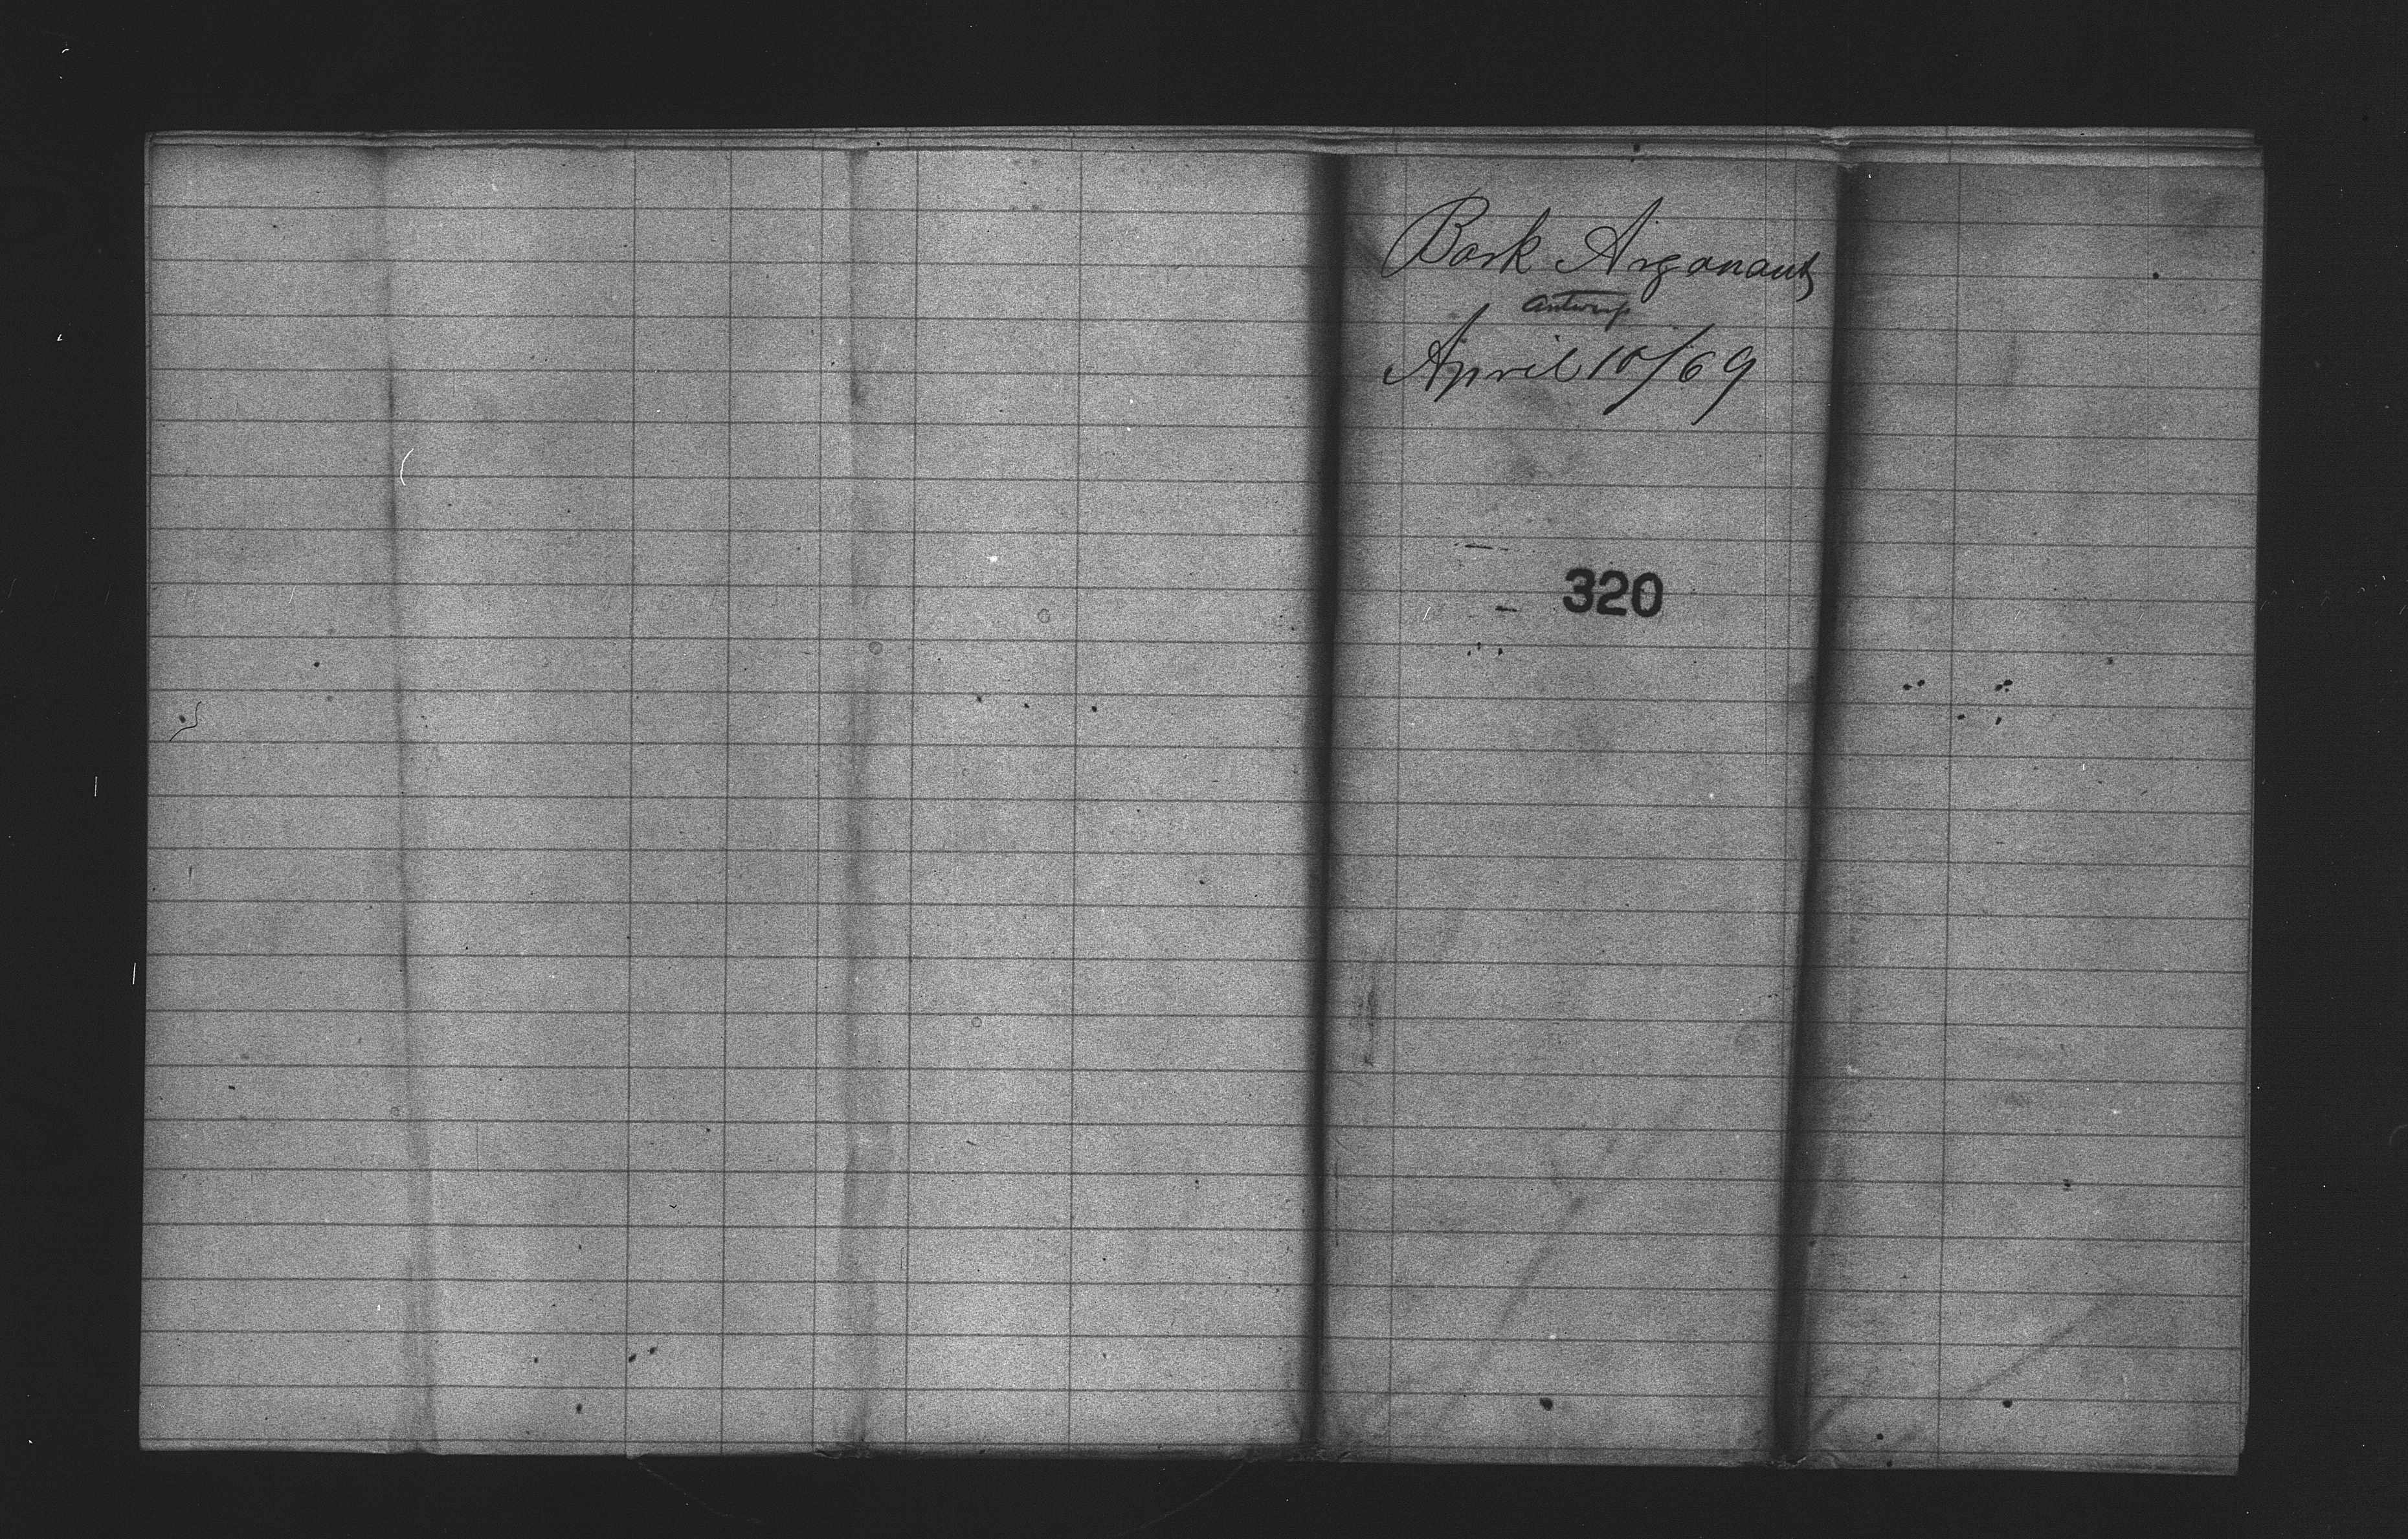 Bark Argonaut
Antwerp
April 10/69
320